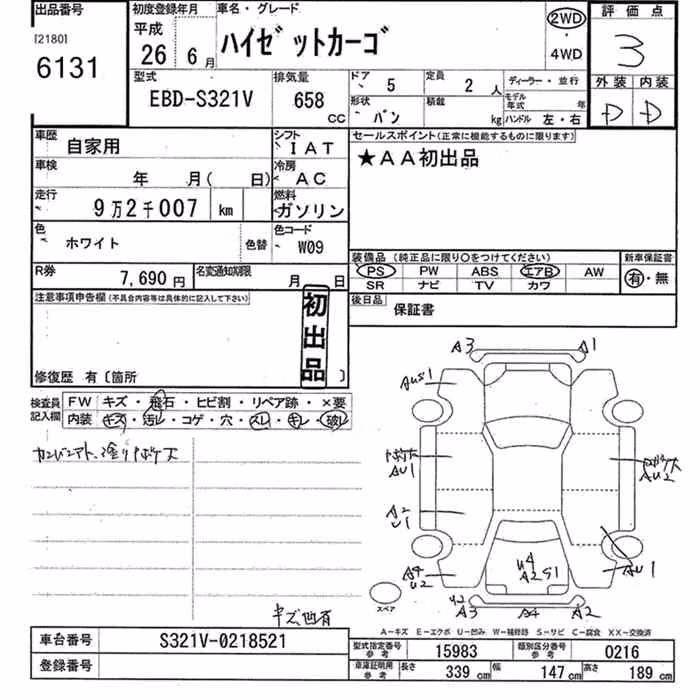 出品番号
[2180]
6131
初度登録年月
平成
26年 6月
車名・グレード
ハイゼットカーゴ
2WD
・
4WD
評価点
3
外装 内装
D D
型式
EBD-S321V
排気量
658
CC
ドア 5
定員 2人
ディーラー・並行
形状 バン
積載 kg
モデル年式 年
ハンドル 左・右
車歴
自家用
シフト
IAT
セールスポイント(正常に機能するものに限ります)
★AA初出品
車検
年 月( 日)
冷房
AC
走行
9万2千007 km
燃料
ガソリン
色
ホワイト
色替
色コード
W09
装備品 (純正品に限り○をつけてください)
新車保証書
PS PW ABS エアB AW
SR ナビ TV カワ
有・無
R券
7,690円
名変通知期限
月 日
後日品
保証書
注意事項申告欄(不具合内容等は具体的に記入して下さい)
初出品
修復歴 有〔箇所 〕
検査員記入欄
FW キズ・飛石・ヒビ割・リペア跡・×要
内装 キズ・汚レ・コゲ・穴・スレ・キレ・破レ
キズ凹有
A3
A1
AUS1
AU1
AU2
A2
U1
A4
U2
U4
A2 S1
AU1
U2
A3
A4
A2
スペア
A-キズ E-エクボ U-凹み W-補修跡 S-サビ C-腐食 XX-交換済
車台番号
S321V-0218521
登録番号
型式指定番号 参考
15983
類別区分番号 参考
0216
車庫証明用 参考
長さ 339 cm
幅 147 cm
高さ 189 cm